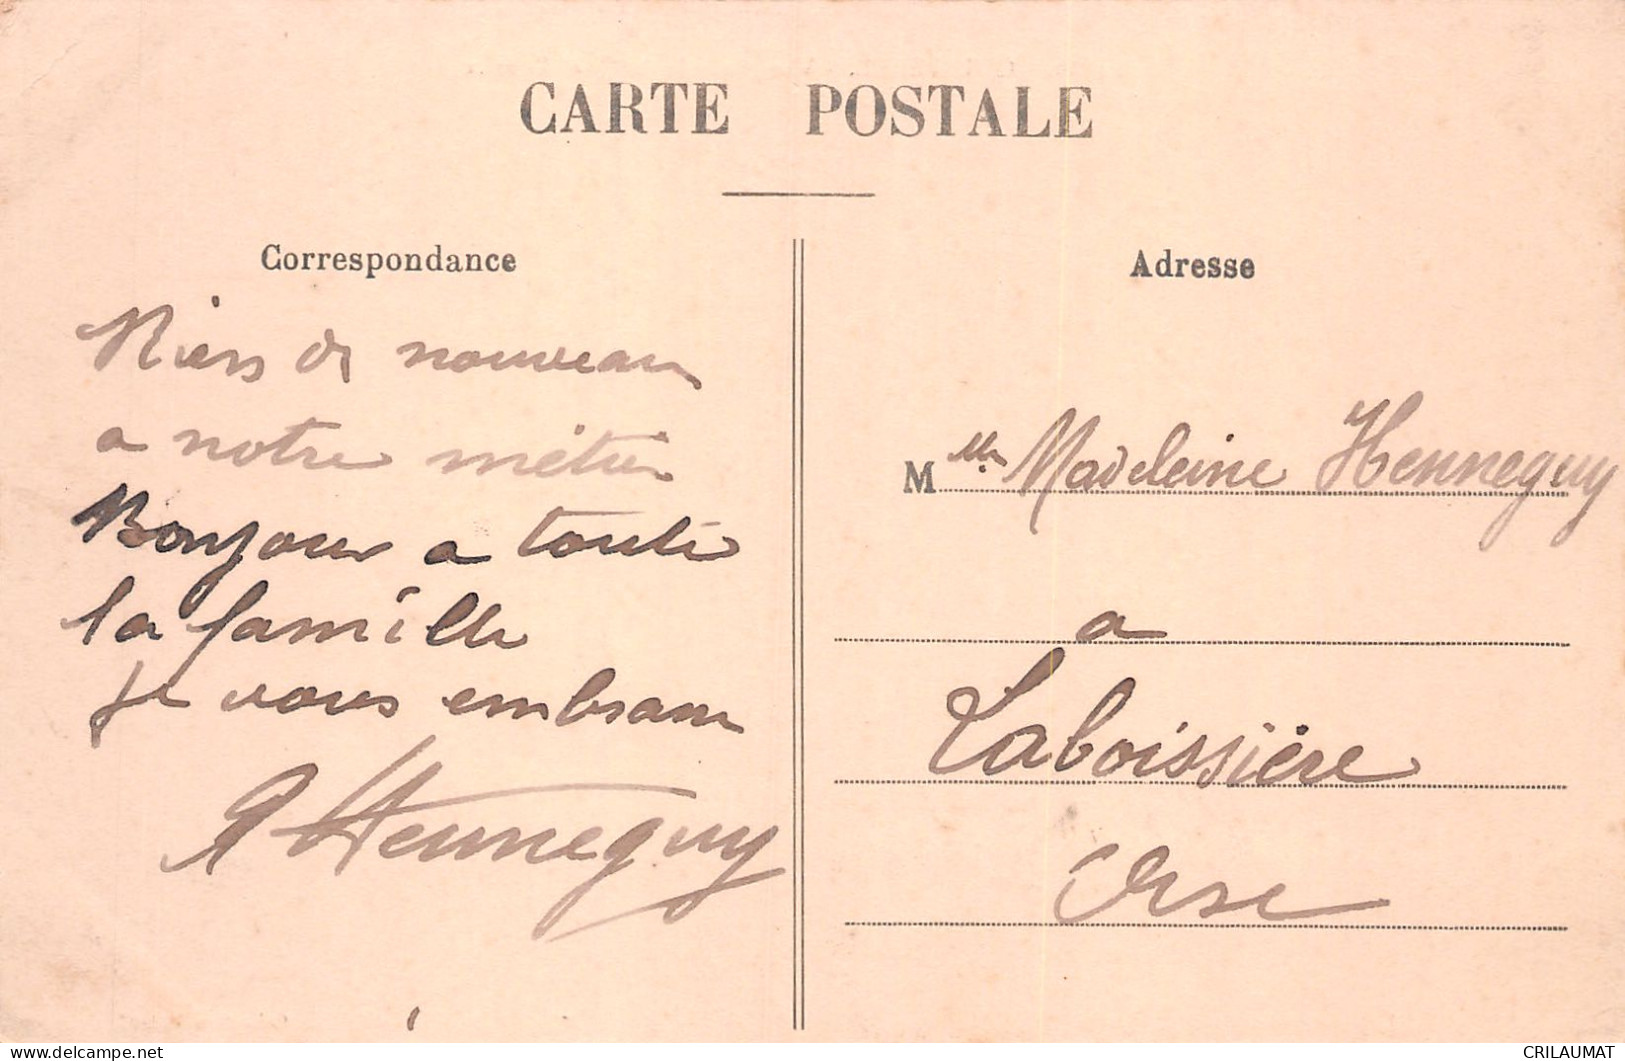 CARTE POSTALE
Correspondance
Riens de nouveau
a notre métier
Bonjour a toute
la famille
je vous embrasse
Henneguy
Adresse
Mlle Madeleine Henneguy
a
Laboissière
Oise
delcampe.net
CRILAUMAT